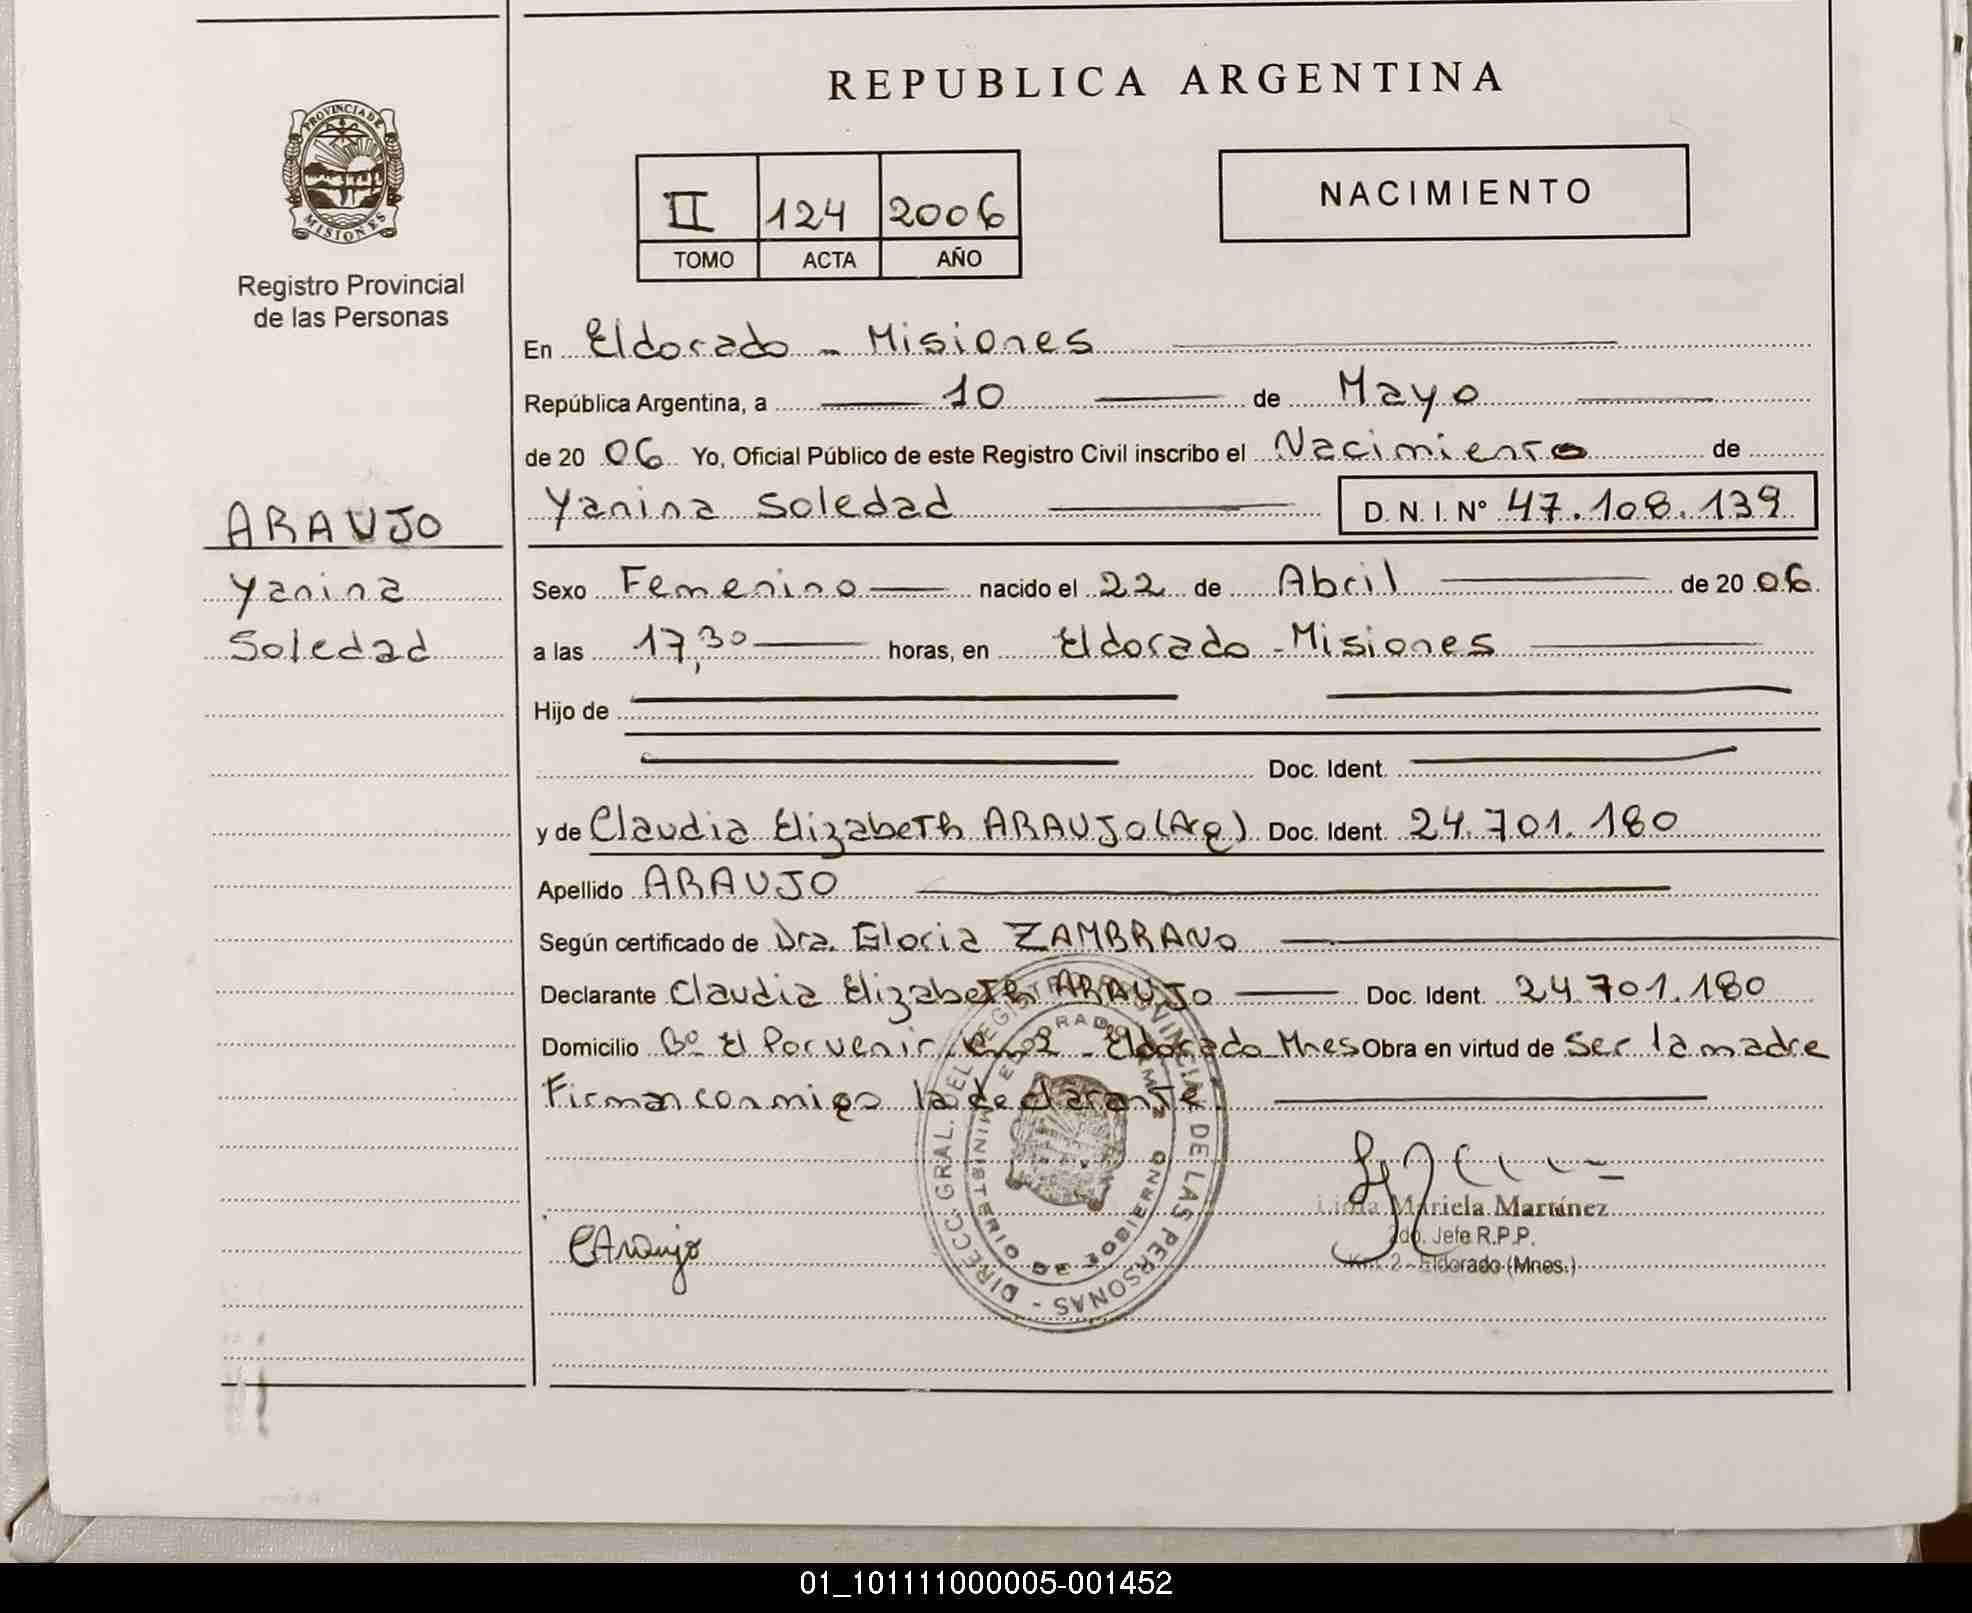 REPUBLICA ARGENTINA
PROVINCIA DE
MISIONES
Registro Provincial
de las Personas
II 124 2006
TOMO ACTA AÑO
NACIMIENTO
En Eldorado - Misiones
República Argentina, a 10 de Mayo
de 20 06 Yo, Oficial Público de este Registro Civil inscribo el Nacimiento de
ARAUJO
Yanina
Soledad
Yanina Soledad D. N. I. Nº 47.108.139
Sexo Femenino nacido el 22 de Abril de 20 06
a las 17,30 horas, en Eldorado - Misiones
Hijo de
Doc. Ident.
y de Claudia Elizabeth ARAUJO (Arg) Doc. Ident. 24.701.180
Apellido ARAUJO
Según certificado de Dra. Gloria ZAMBRANO
Declarante Claudia Elizabeth ARAUJO Doc. Ident. 24.701.180
Domicilio Bº El Porvenir Km 2 - Eldorado - Mnes Obra en virtud de Ser la madre
Firman conmigo la declarante.
DIRECC. GRAL. EL REGISTRO PROVINCIAL DE LAS PERSONAS -
MINISTERIO DE GOBIERNO
CAraujo
Mariela Martínez
2do. Jefe R.P.P.
Km. 2 - Eldorado (Mnes.)
01_101111000005-001452